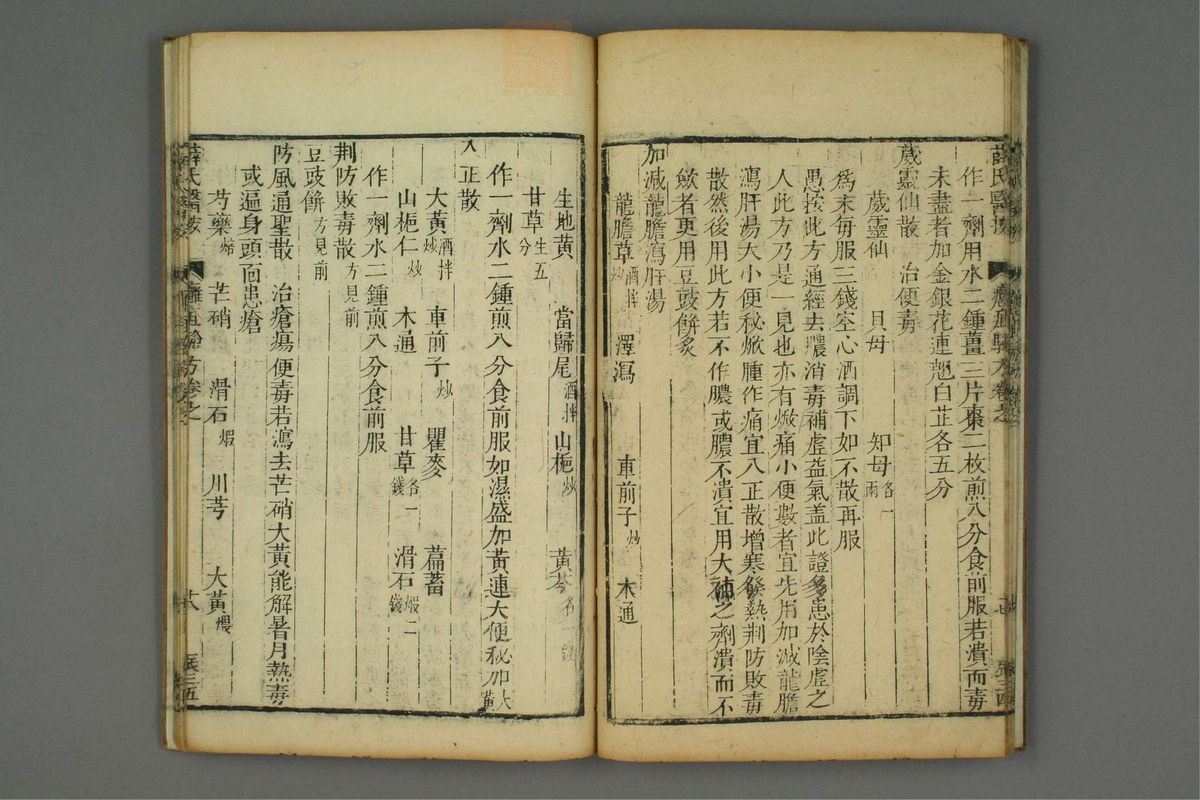 作一劑用水二鍾薑三片棗二枚煎八分食前服若潰而毒
未盡者加金銀花連翹白芷各五分
葳靈仙散 治便毒
葳靈仙 貝母 知母各一兩
爲末每服三錢空心酒調下如不散再服
愚按此方通經去膿消毒補虛益氣盖此證多患於陰虛之
人此方乃是一見也亦有焮痛小便數者宜先用加減龍膽
瀉肝湯大小便秘焮腫作痛宜八正散增寒發熱荆防敗毒
散然後用此方若不作膿或膿不潰宜用大補之劑潰而不
斂者更用豆豉餅炙
加減龍膽瀉肝湯
龍膽草酒拌炒 澤瀉 車前子炒 木通
生地黄 當歸尾酒拌 山梔炒 黄芩
甘草生五分
作一劑水二鍾煎八分食前服如濕盛加黄連大便秘加大黄
八正散
大黄酒拌炒 車前子炒 瞿麥 萹蓄
山梔仁炒 木通 甘草各一錢 滑石煅二錢
作一劑水二鍾煎八分食前服
荆防敗毒散方見前
豆豉餅方見前
防風通聖散 治瘡瘍便毒若瀉去芒硝大黄能解暑月熱毒
或遍身頭面患瘡
芍藥 芒硝 滑石煅 川芎 大黄煨
薛氏醫按